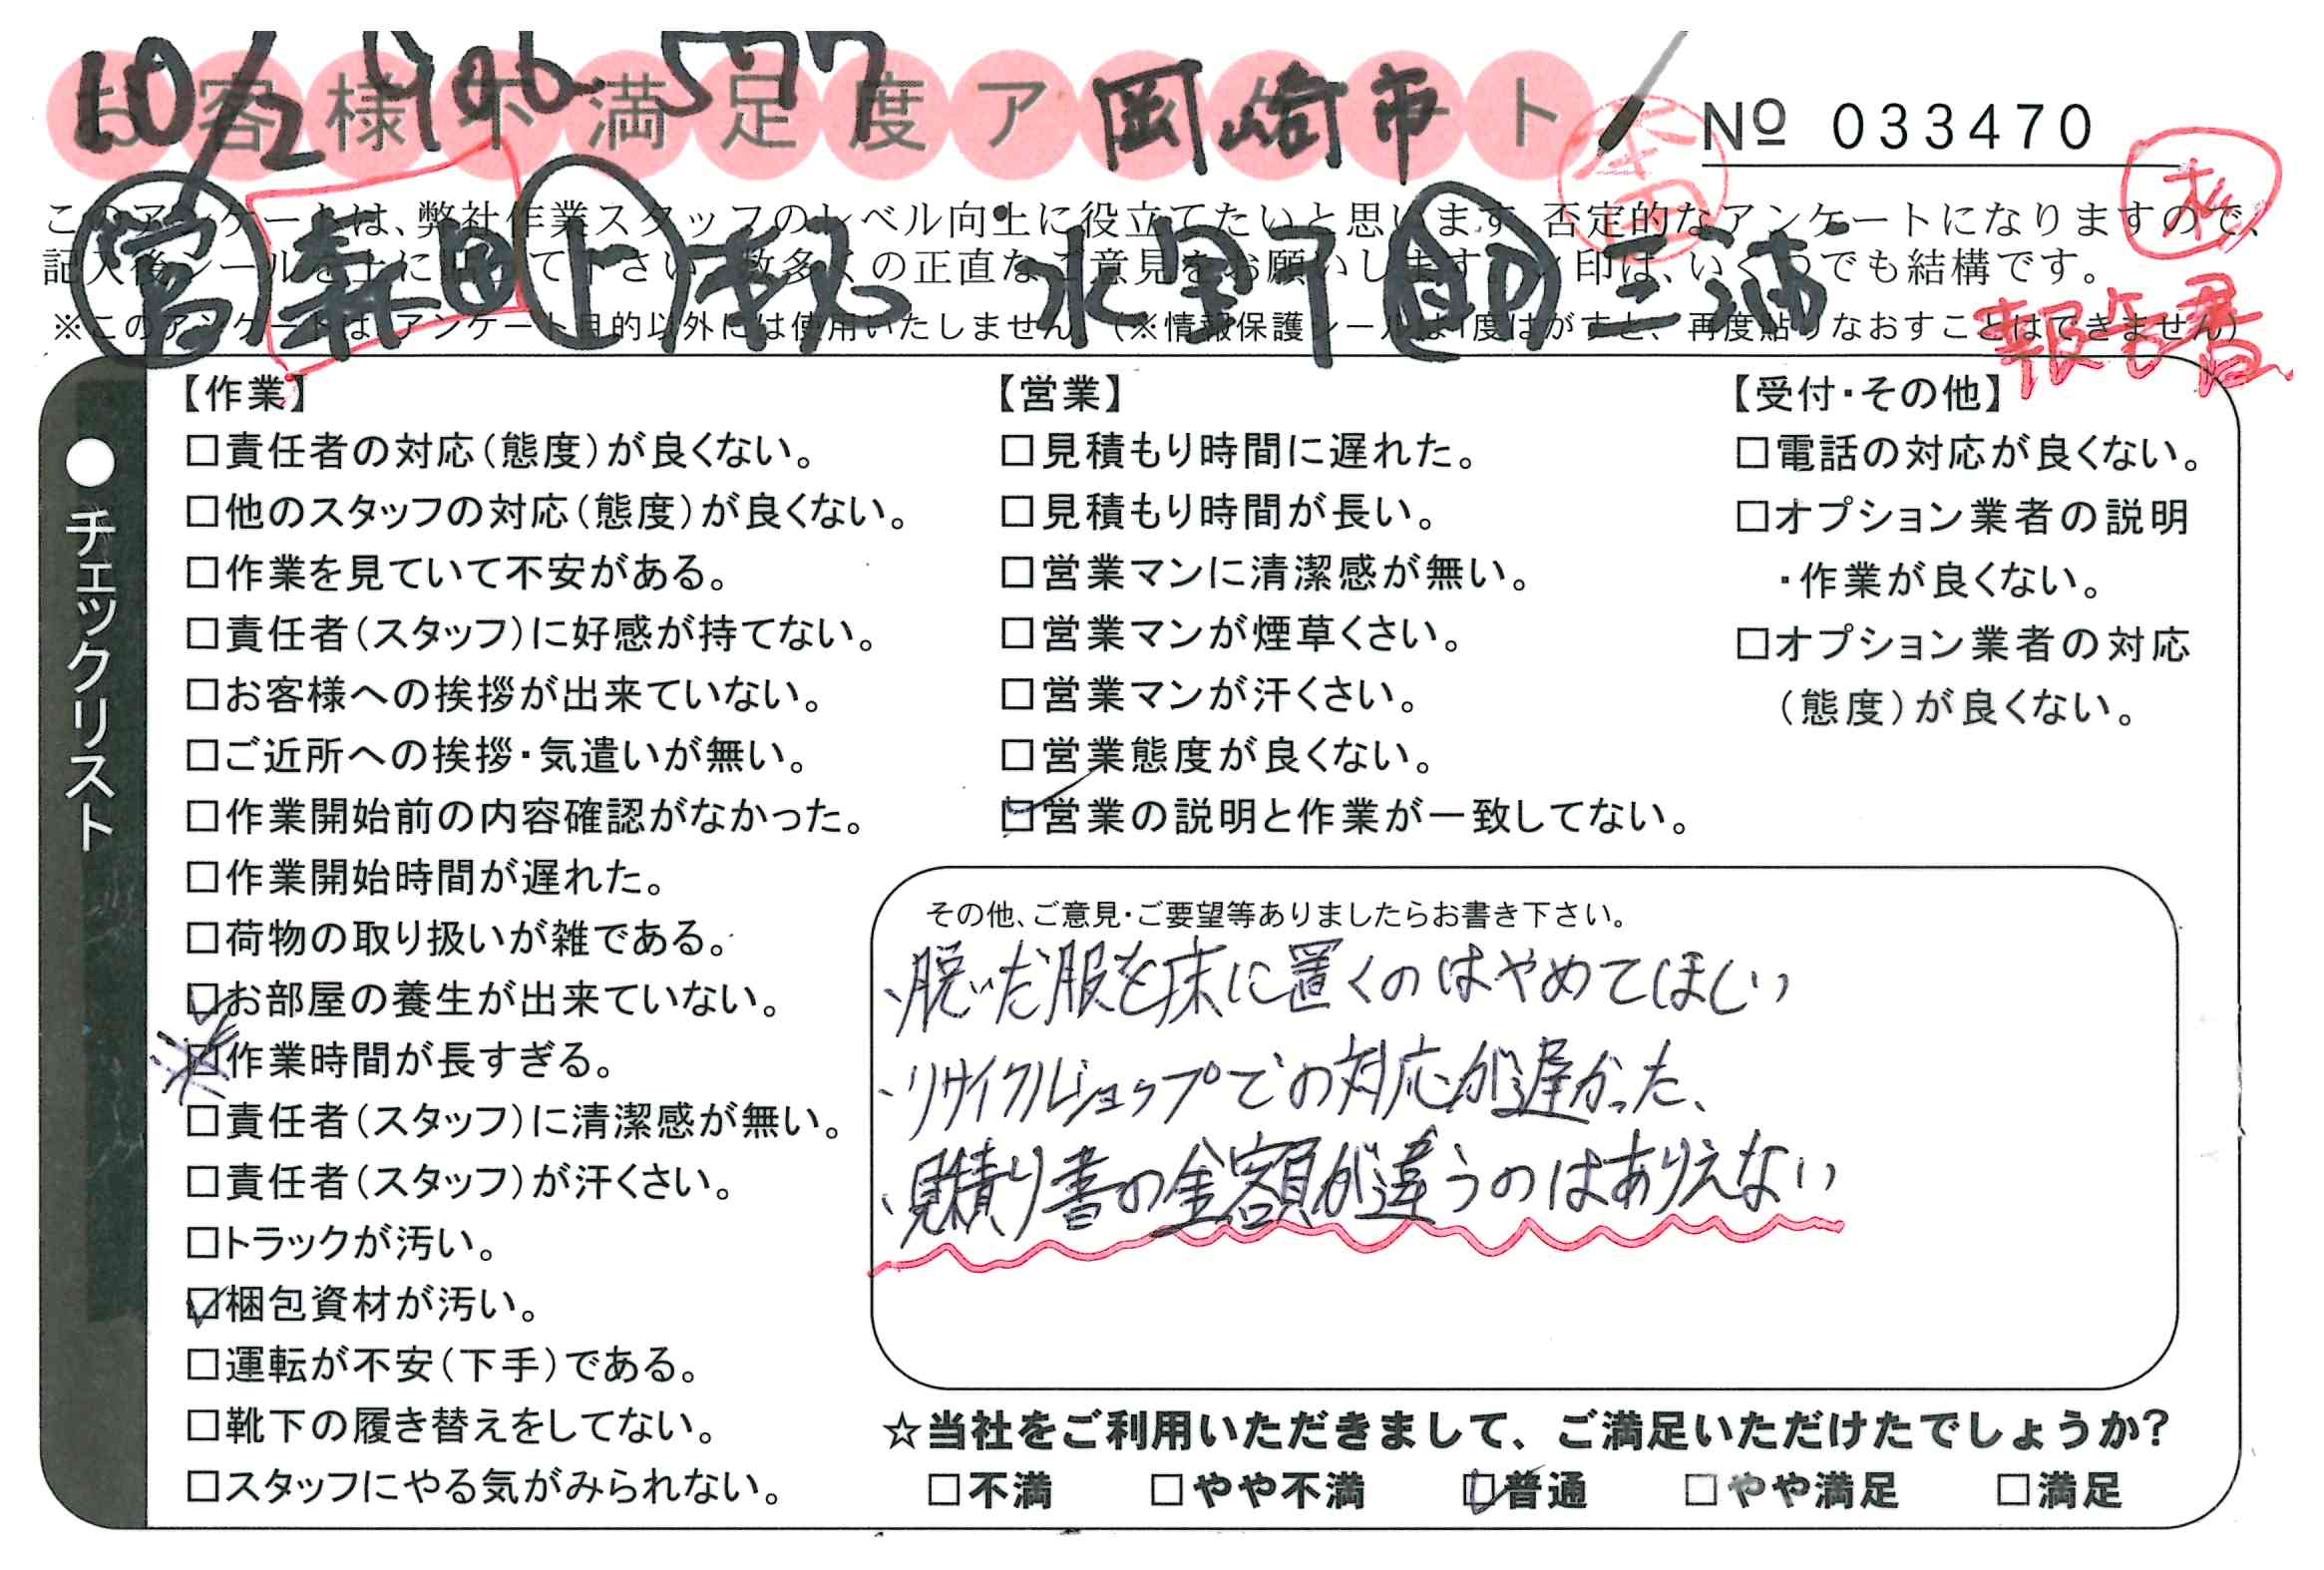 お客様不満足度アンケート
10/2
岡崎市
No 033470
このアンケートは、弊社作業スタッフのレベル向上に役立てたいと思います。否定的なアンケートになりますので、
記入後シールを上に貼って下さい。数多くの正直なご意見をお願いします。レ印は、いくつでも結構です。
※このアンケートは、アンケート目的以外には使用いたしません。(※情報保護シールは1度はがすと、再度貼りなおすことはできません)
営 森田 上 水野 自 三浦
報告書
●チェックリスト
【作業】
□責任者の対応(態度)が良くない。
□他のスタッフの対応(態度)が良くない。
□作業を見ていて不安がある。
□責任者(スタッフ)に好感が持てない。
□お客様への挨拶が出来ていない。
□ご近所への挨拶・気遣いが無い。
□作業開始前の内容確認がなかった。
□作業開始時間が遅れた。
□荷物の取り扱いが雑である。
☑お部屋の養生が出来ていない。
□作業時間が長すぎる。
□責任者(スタッフ)に清潔感が無い。
□責任者(スタッフ)が汗くさい。
□トラックが汚い。
☑梱包資材が汚い。
□運転が不安(下手)である。
□靴下の履き替えをしてない。
□スタッフにやる気がみられない。
【営業】
□見積もり時間に遅れた。
□見積もり時間が長い。
□営業マンに清潔感が無い。
□営業マンが煙草くさい。
□営業マンが汗くさい。
□営業態度が良くない。
☑営業の説明と作業が一致してない。
【受付・その他】
□電話の対応が良くない。
□オプション業者の説明
・作業が良くない。
□オプション業者の対応
(態度)が良くない。
その他、ご意見・ご要望等ありましたらお書き下さい。
・脱いだ服を床に置くのはやめてほしい
・リサイクルショップでの対応が遅かった、
・見積り書の金額が違うのはありえない
☆当社をご利用いただきまして、ご満足いただけたでしょうか?
□不満 □やや不満 ☑普通 □やや満足 □満足